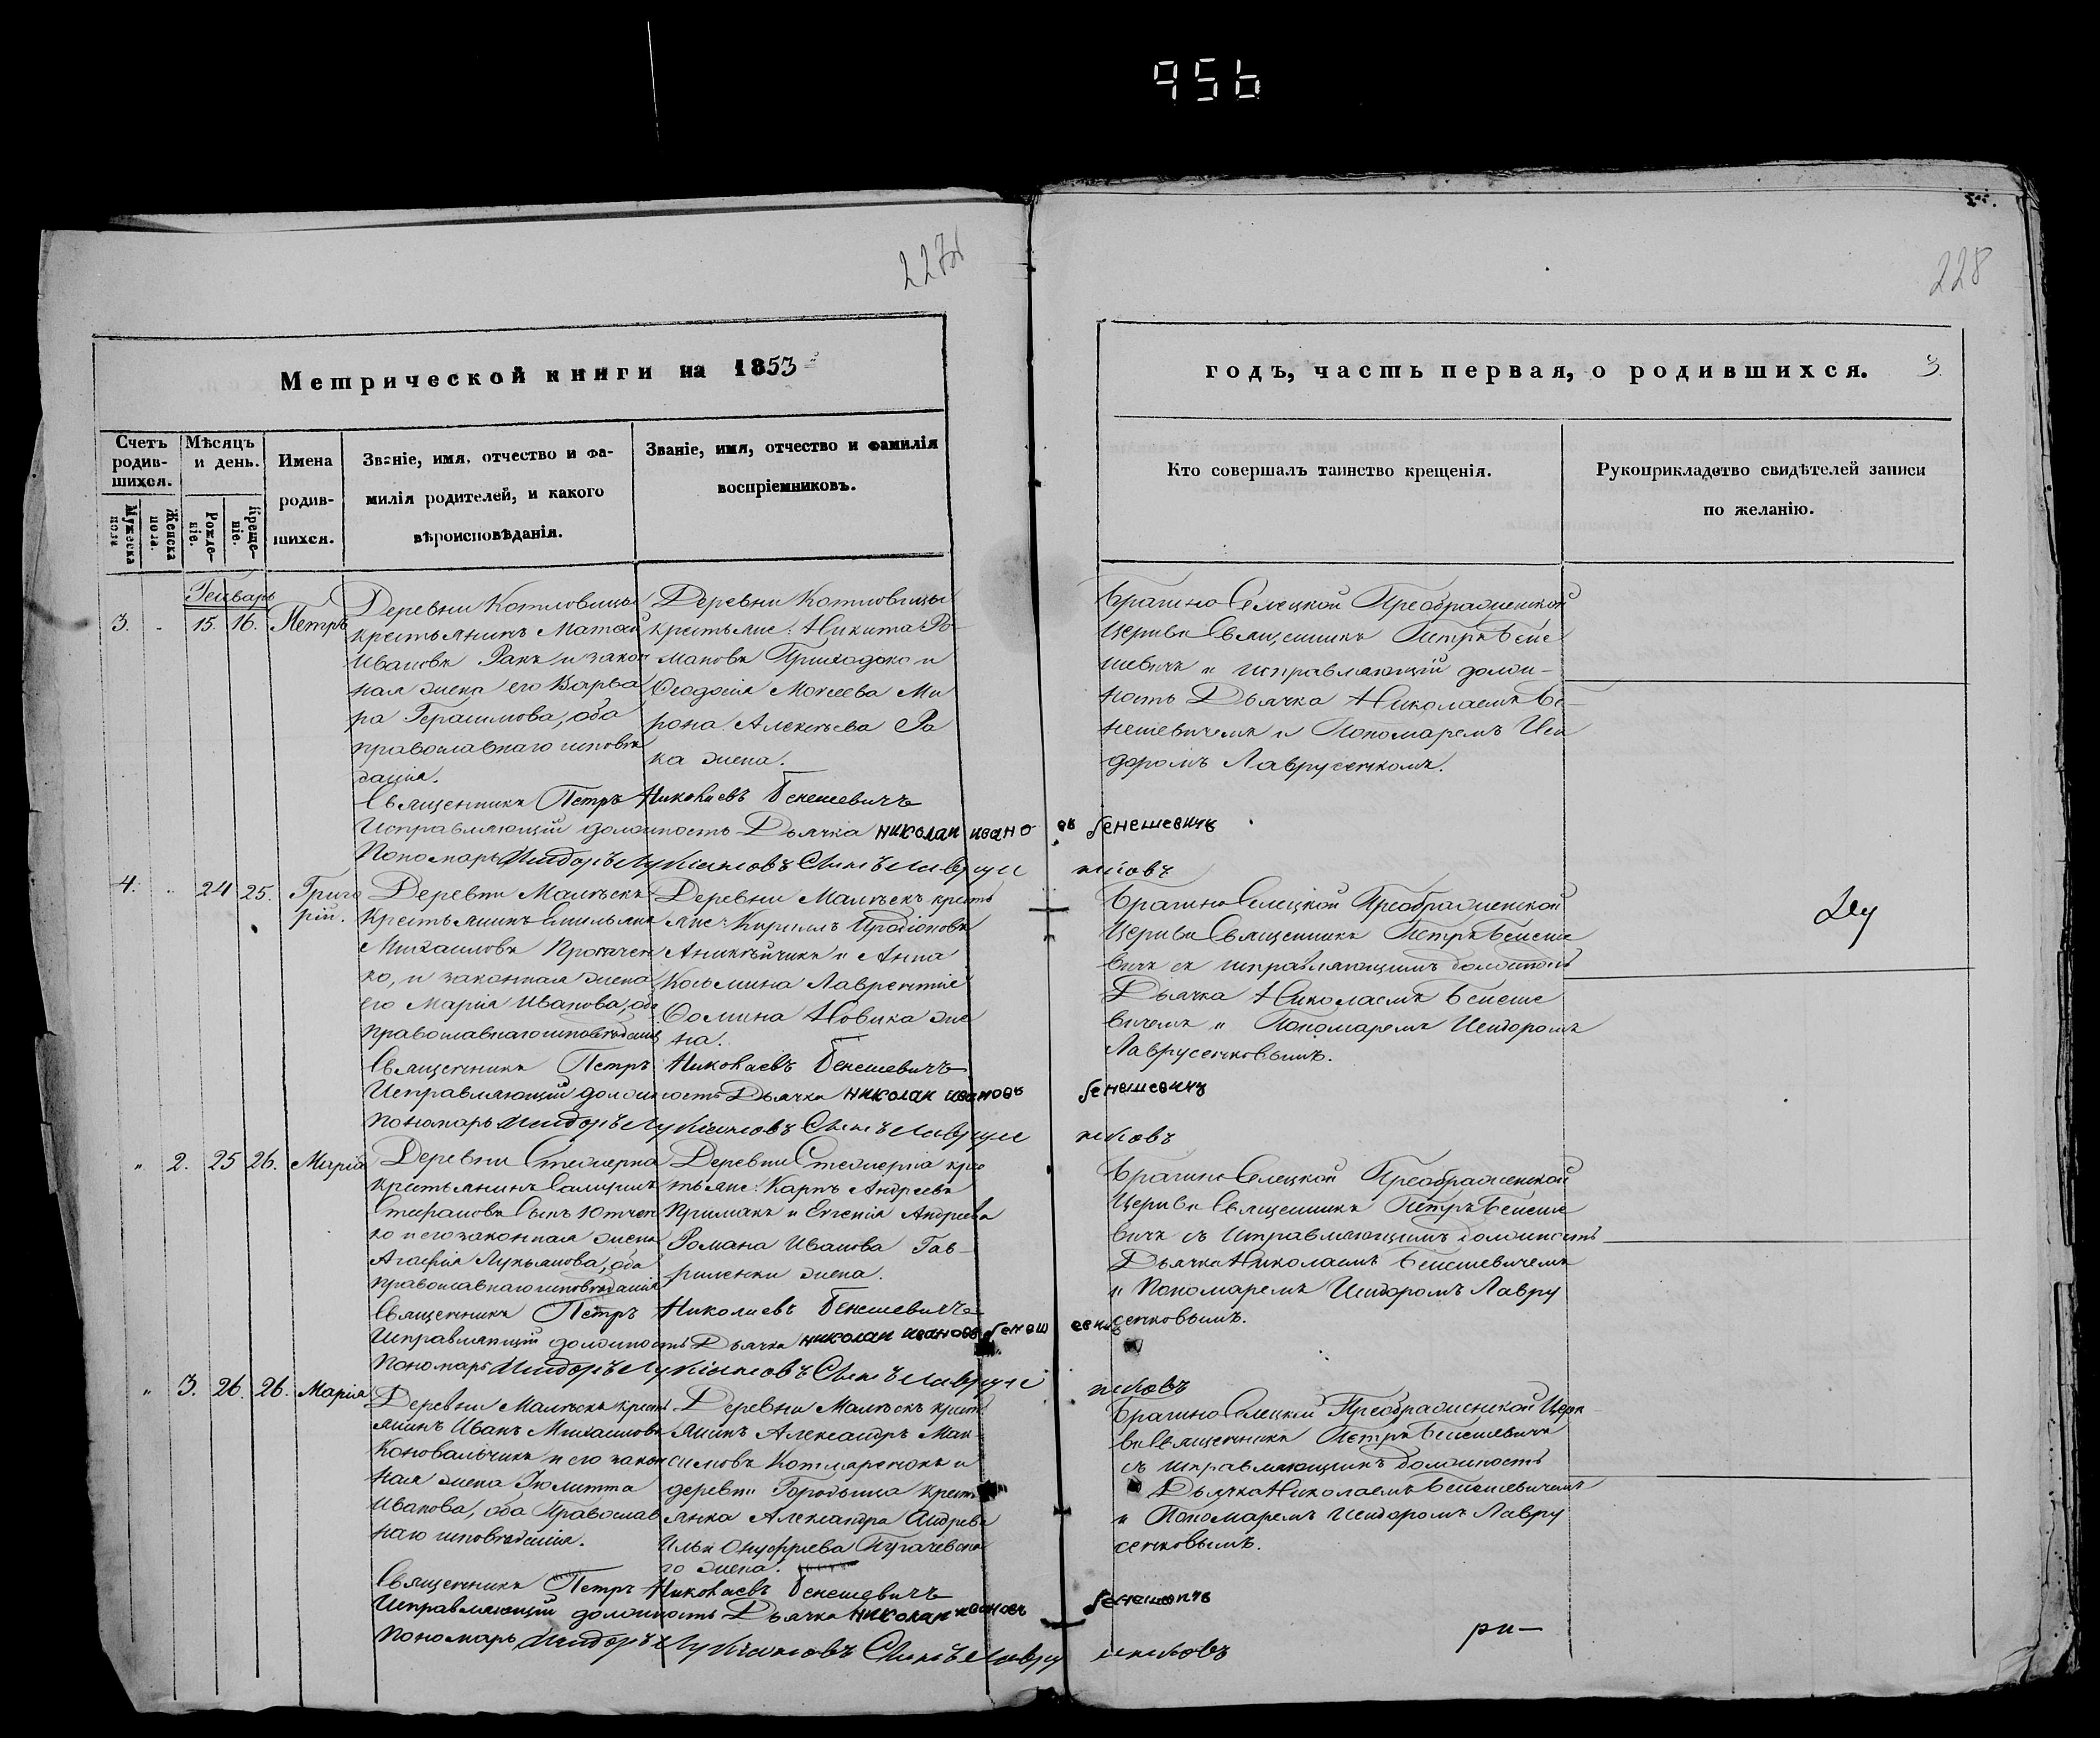 956
227
228
Метрической книги на 1853
годъ, часть первая, о родившихся. 3.
Счетъ родив-шихся.
Мѣсяцъ и день.
Мужеска пола
Женска пола.
Рожде-ніе.
Креще-ніе.
Имена
родив-
шихся.
Званіе, имя, отчество и фа-
милія родителей, и какого
вѣроисповѣданія.
Званіе, имя, отчество и фамилія
воспріемниковъ.
Кто совершалъ таинство крещенія.
Рукоприкладство свидѣтелей записи
по желанію.
Генварь
3. 15. 16. Петръ
Деревни Котловицы
крестьянинъ Матѳей
Ивановъ Ракъ и закон
ная жена его Варва
ра Герасимова, оба
православнаго исповѣ
данія.
Деревни Котловицы
крестьяне: Никита Ро
мановъ Приходько и
Ѳеодосія Моисеева Ми
рона Алексѣева Ра
ка жена.
Брагино Селецкой Преображенской
Церкви Священникъ Петръ Бене
шевичъ и исправляющій долж-
ность Дьячка Николаемъ Бе-
нешевичемъ и Пономаремъ Иси
доромъ Лаврусенкомъ.
Священникъ Петръ Николаевъ Бенешевичъ
Исправляющій должность Дьячка николаи ивановъ бенешевичъ
Пономарь Исидоръ Лукіановъ Сынъ Лаврусенковъ
4. 24 25. Григо
рій.
Деревни Малѣекъ
Крестьянинъ Емельянъ
Михаиловъ Протчен
ко, и законная жена
его Марія Иванова, оба
православнаго исповѣданія
Деревни Малѣекъ кресть
яне: Кириллъ Иродіоновъ
Аникѣйчикъ и Анна
Козьмина Лаврентія
Ѳомина Новика же
на.
Брагино Селецкой Преображенской
Церкви Священникъ Петръ Бенеше
вичъ съ исправляющимъ должность
Дьячка Николаемъ Бенеше
вичемъ и Пономаремъ Исидоромъ
Лаврусенковымъ.
Священникъ Петръ Николаевъ Бенешевичъ
Исправляющій должность Дьячка николаи ивановъ бенешевичъ
Пономарь Исидоръ Лукіановъ Сынъ Лаврусенковъ
" 2. 25 26. Марія
Деревни Стежерна
крестьянинъ
Стефановъ Сынъ Ютчен
ко и его законная жена
Агафія Лукьянова, оба
православнаго исповѣданія
Деревни Стежерна крес
тьяне: Карпъ Андреевъ
Примакъ и Евгенія Андреева
Романа Иванова Гав-
риленки жена.
Брагино Селецкой Преображенской
Церкви Священникъ Петръ Бенеше
вичъ съ исправляющимъ должность
Дьячка Николаемъ Бенешевичемъ
и Пономаремъ Исидоромъ Лавру
сенковымъ.
Священникъ Петръ Николаевъ Бенешевичъ
Исправляющій должность Дьячка николаи ивановъ бенешевичъ
Пономарь Исидоръ Лукіановъ Сынъ Лаврусенковъ
" 3. 26. 26. Марія
Деревни Малѣекъ кресть
янинъ Иванъ Михаиловъ
Коновальчикъ и его закон
ная жена Іюлитта
Иванова, оба Православ
наго исповѣданія.
Деревни Малѣекъ кресть
янинъ Александръ Мак
симовъ Котляренокъ и
деревни Городища кресть
янка Александра Андреева
Ильи Онуфріева Пугачевска
го жена.
Брагино Селецкой Преображенской Церк-
ви Священникъ Петръ Бенешевичъ
съ исправляющимъ должность
Дьячка Николаемъ Бенешевичемъ
и Пономаремъ Исидоромъ Лавру
сенковымъ.
Священникъ Петръ Николаевъ Бенешевичъ
Исправляющій должность Дьячка николаи ивановъ бенешевичъ
Пономарь Исидоръ Лукіановъ Сынъ Лаврусенковъ
ри-